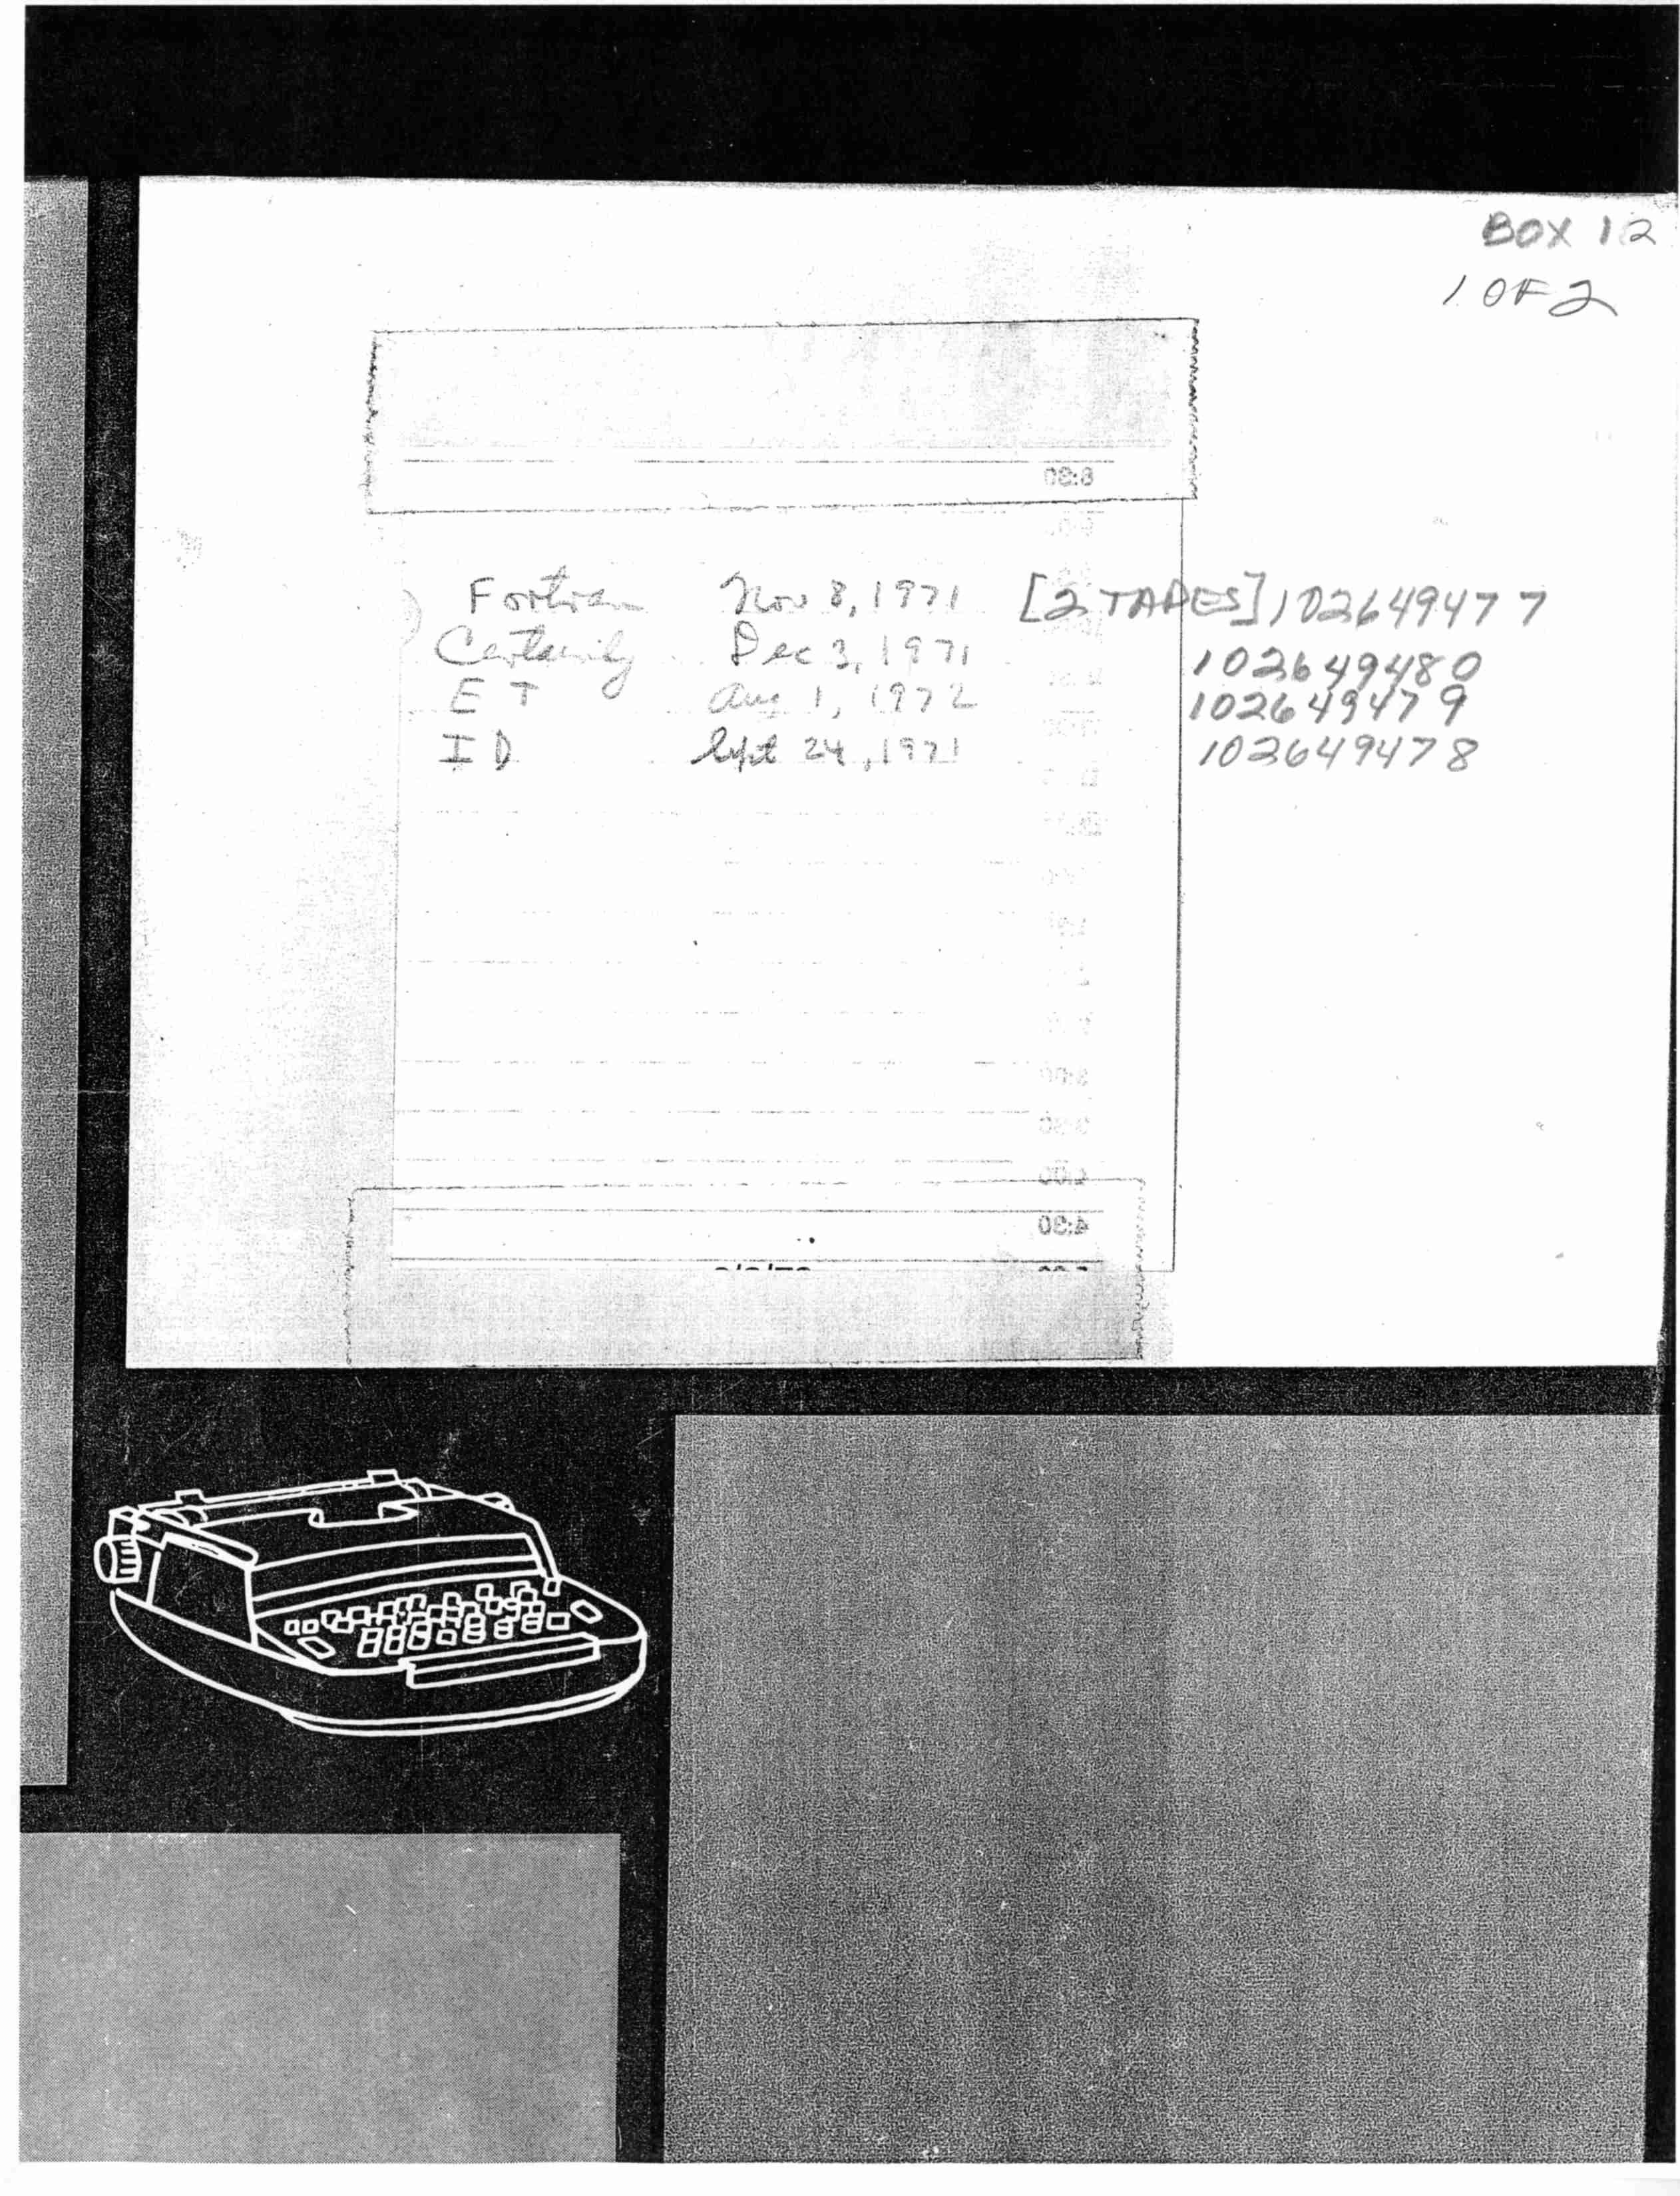 BOX 12
1 OF 2
8:30
Fortran Nov 8, 1971 [2 TAPES] 102649477
Certainty Dec 3, 1971 102649480
ET Aug 1, 1972 102649479
ID Sept 24, 1971 102649478
3:00
3:30
4:00
4:30